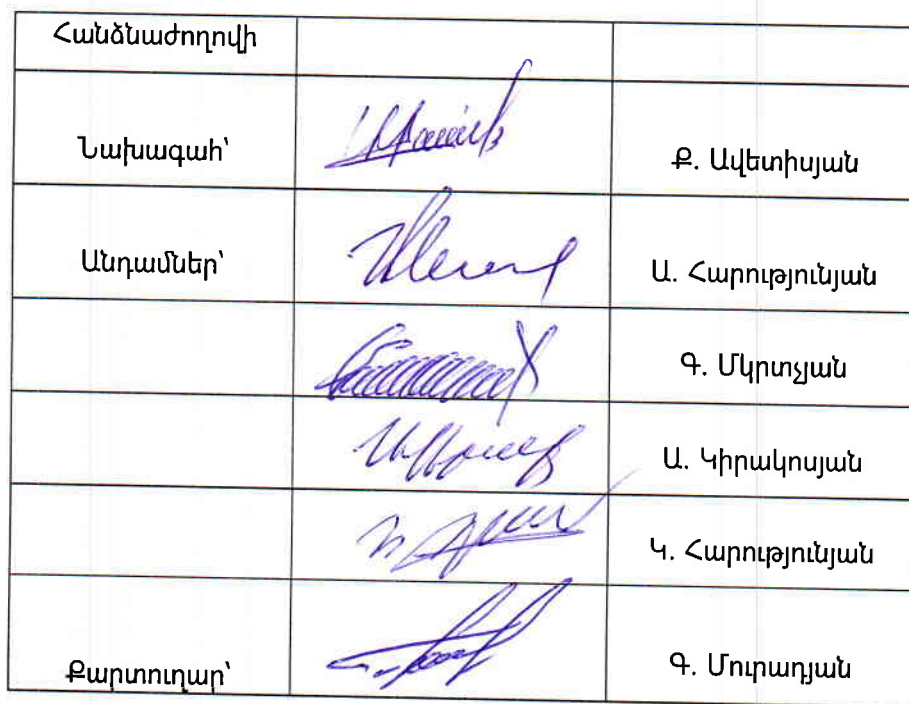 Հանձնաժողովի
Նախագահ՝ Ք. Ավետիսյան
Անդամներ՝ Ա. Հարությունյան
Գ. Մկրտչյան
Ա. Կիրակոսյան
Կ. Հարությունյան
Քարտուղար՝ Գ. Մուրադյան